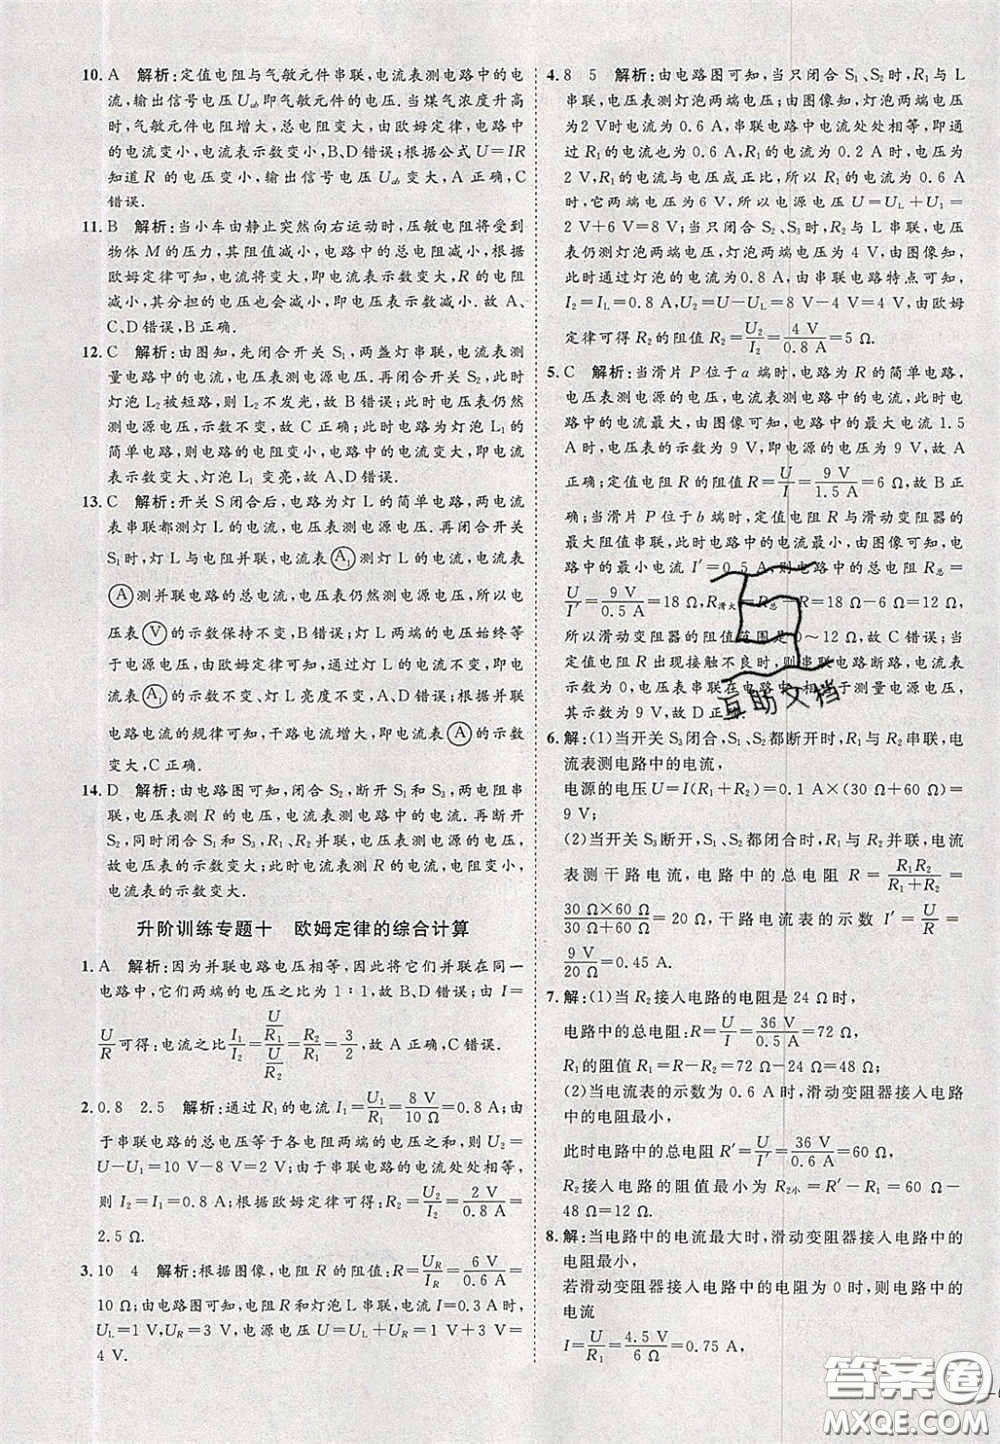 10. A 解析:定值电阻与气敏元件串联,电流表测电路中的电
流,输出信号电压Uab即气敏元件的电压.当煤气浓度升高
时,气敏元件电阻增大,总电阻变大,由欧姆定律,电路中
的电流变小,电流表示数变小,B、D错误;根据公式U=IR
知道R的电压变小,输出信号电压Uab变大,A正确,C
错误.
11. B 解析:当小车由静止突然向右运动时,压敏电阻将受到
物体M的压力,其阻值减小,电路中的总电阻减小,根据
欧姆定律可知,电流将变大,即电流表示数变大;R的电阻
减小,其分担的电压也会减小,即电压表示数变小.故A、
C、D错误,B正确.
12. C 解析:由图知,先闭合开关S1,两盏灯串联,电流表测
量电路中的电流,电压表测电源电压.再闭合开关S2,此时
灯泡L2被短路,则L2不发光,故B错误;此时电压表仍然
测电源电压,示数不变,故C正确;此时电路为只有灯泡L1的
简单电路,则电路的电阻变小,电路中的电流变大,电流表
的示数变大、灯泡L1变亮,故A、D错误.
13. C 解析:开关S闭合后,电路为灯L的简单电路,两电流
表串联都测灯L的电流,电压表测电源电压.再闭合开关
S1时,灯L与电阻并联,电流表(A1)测灯L的电流,电流表
(A)测并联电路的总电流,电压表仍然测电源电压,所以电
压表(V)的示数保持不变.灯L两端的电压始终等于
电源电压,灯L的电阻不变,则通过灯L的电流不变,电流
表(A1)的示数不变、灯L亮度不变,故C正确.根据并联
电路电流的规律可知,干路电流变大,即电流表(A)的示数
变大,A、B、D错误.
14. D 解析:由电路图可知,闭合S2,断开S1和S3,两电阻串
联,电压表测R的电压,电流表测电路中的电流.再断开
S2,闭合S1和S3,电路为R的简单电路,电压表测电源的电压,
故电压表的示数变大;此时电流表测R的电流,电阻变小,
电流表的示数变大.
升阶训练专题十 欧姆定律的综合计算
1. A 解析:因为并联电路电压相等,因此将它们并联在同一
电路中,它们两端的电压之比为1∶1,故B、D错误;由I=
U/R可得:电流之比I1/I2=(U/R1)/(U/R2)=R2/R1=3/2,故A正确,C错误.
2. 0.8 2.5 解析:通过R1的电流I1=U1/R1=8 V/10 Ω=0.8 A;
由于串联电路的总电压等于各电阻两端的电压之和,U2=
U-U1=10 V-8 V=2 V;由于串联电路的电流处处相等,
则I2=I1=0.8 A;根据欧姆定律可得,R2=U2/I2=2 V/0.8 A=
2.5 Ω.
3. 10 4 解析:根据图像,电阻R的阻值:R=UR/IR=6 V/0.6 A=
10 Ω;由电路图可知,电阻R和灯泡L串联,电流I=0.3 A时,
UL=1 V,UR=3 V,电源电压U=UL+UR=1 V+3 V=
4 V.
4. 8 5 解析:由电路图可知,当只闭合S1、S2时,R1与L
串联,电压表测灯泡两端电压;由图像知,灯泡两端的电压
为2 V时电流为0.6 A,串联电路中电流处处相等,所以通
过R1的电流也为0.6 A;由于R1的电流为0.2 A时电压为
2 V,R1的电流与电压成正比,所以R1的电流为0.6 A
时,R1的电压为6 V,所以电源电压U=UL+U1=
2 V+6 V=8 V;当只闭合S1、S3时,R2与L串联,电压
表仍测灯泡两端电压,灯泡两端电压为4 V,由图像知,
此时通过灯泡的电流为0.8 A,由串联电路特点可知,
I2=IL=0.8 A,U2=U-UL=8 V-4 V=4 V,由欧姆
定律可得R2的阻值R2=U2/I2=4 V/0.8 A=5 Ω.
5. C 解析:当滑片P位于a端时,电路为R的简单电路,
电压表测电源电压,电流表测电路中的最大电流1.5
A时,电压表的示数为9 V,即电源的电压为9 V,故A
正确;定值电阻的阻值R=U/I=9 V/1.5 A=6 Ω,故B
正确;当滑片P位于b端时,定值电阻与滑动变阻器的
最大阻值串联,此时电路中的电流最小,由图像知,电
路中的最小电流I′=0.5 A,则电路中的总电阻R总=
U/I′=9 V/0.5 A=18 Ω,R滑大=R总-R=18 Ω-6 Ω=12 Ω,
所以滑动变阻器的阻值范围是0~12 Ω,故C错误;当
定值电阻R出现接触不良时,则串联电路断路,电流表
示数为0,电压表串联在电路中,相当于测量电源电压,
其示数为9 V,故D正确.
6. 解:(1)当开关S3闭合,S1、S2都断开时,R1与R2串联,电
流表测电路中的电流,
电源的电压U=I(R1+R2)=0.1 A×(30 Ω+60 Ω)=
9 V;
(2)当开关S3断开,S1、S2都闭合时,R1与R2并联,电流
表测干路电流,电路中的总电阻R=R1R2/(R1+R2)=
30 Ω×60 Ω/(30 Ω+60 Ω)=20 Ω,干路电流表的示数I′=U/R=
9 V/20 Ω=0.45 A.
7. 解:(1)当R2接入电路的电阻是24 Ω时,
电路中的总电阻:R=U/I=36 V/0.5 A=72 Ω,
R1的阻值R1=R-R2=72 Ω-24 Ω=48 Ω;
(2)当电流表的示数为0.6 A时,滑动变阻器接入电路
中的电阻最小,
此时电路中的总电阻R′=U/I′=36 V/0.6 A=60 Ω,
R2接入电路的阻值最小R2小=R′-R1=60 Ω-48 Ω
=12 Ω.
8. 解:当电路中的电流最大时,滑动变阻器接入电路中的
电阻最小,
若滑动变阻器接入电路中的电阻为0时,则电路中的
电流
I=U/R1=4.5 V/6 Ω=0.75 A,
互助文档
答案圈
MXQE.COM